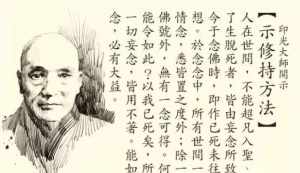 印光大師開示
【示修持方法】
人在世間，不能超凡入聖、
了生脫死者，皆由妄念所致。
今于念佛時，即作已死未往
想。於念念中，所有世間一切
情念，悉皆置之度外；除一句
佛號外，無有一念可得。何以
能令如此？以我已死矣，所有
一切妄念，皆用不著。能如是
念，必有大益。